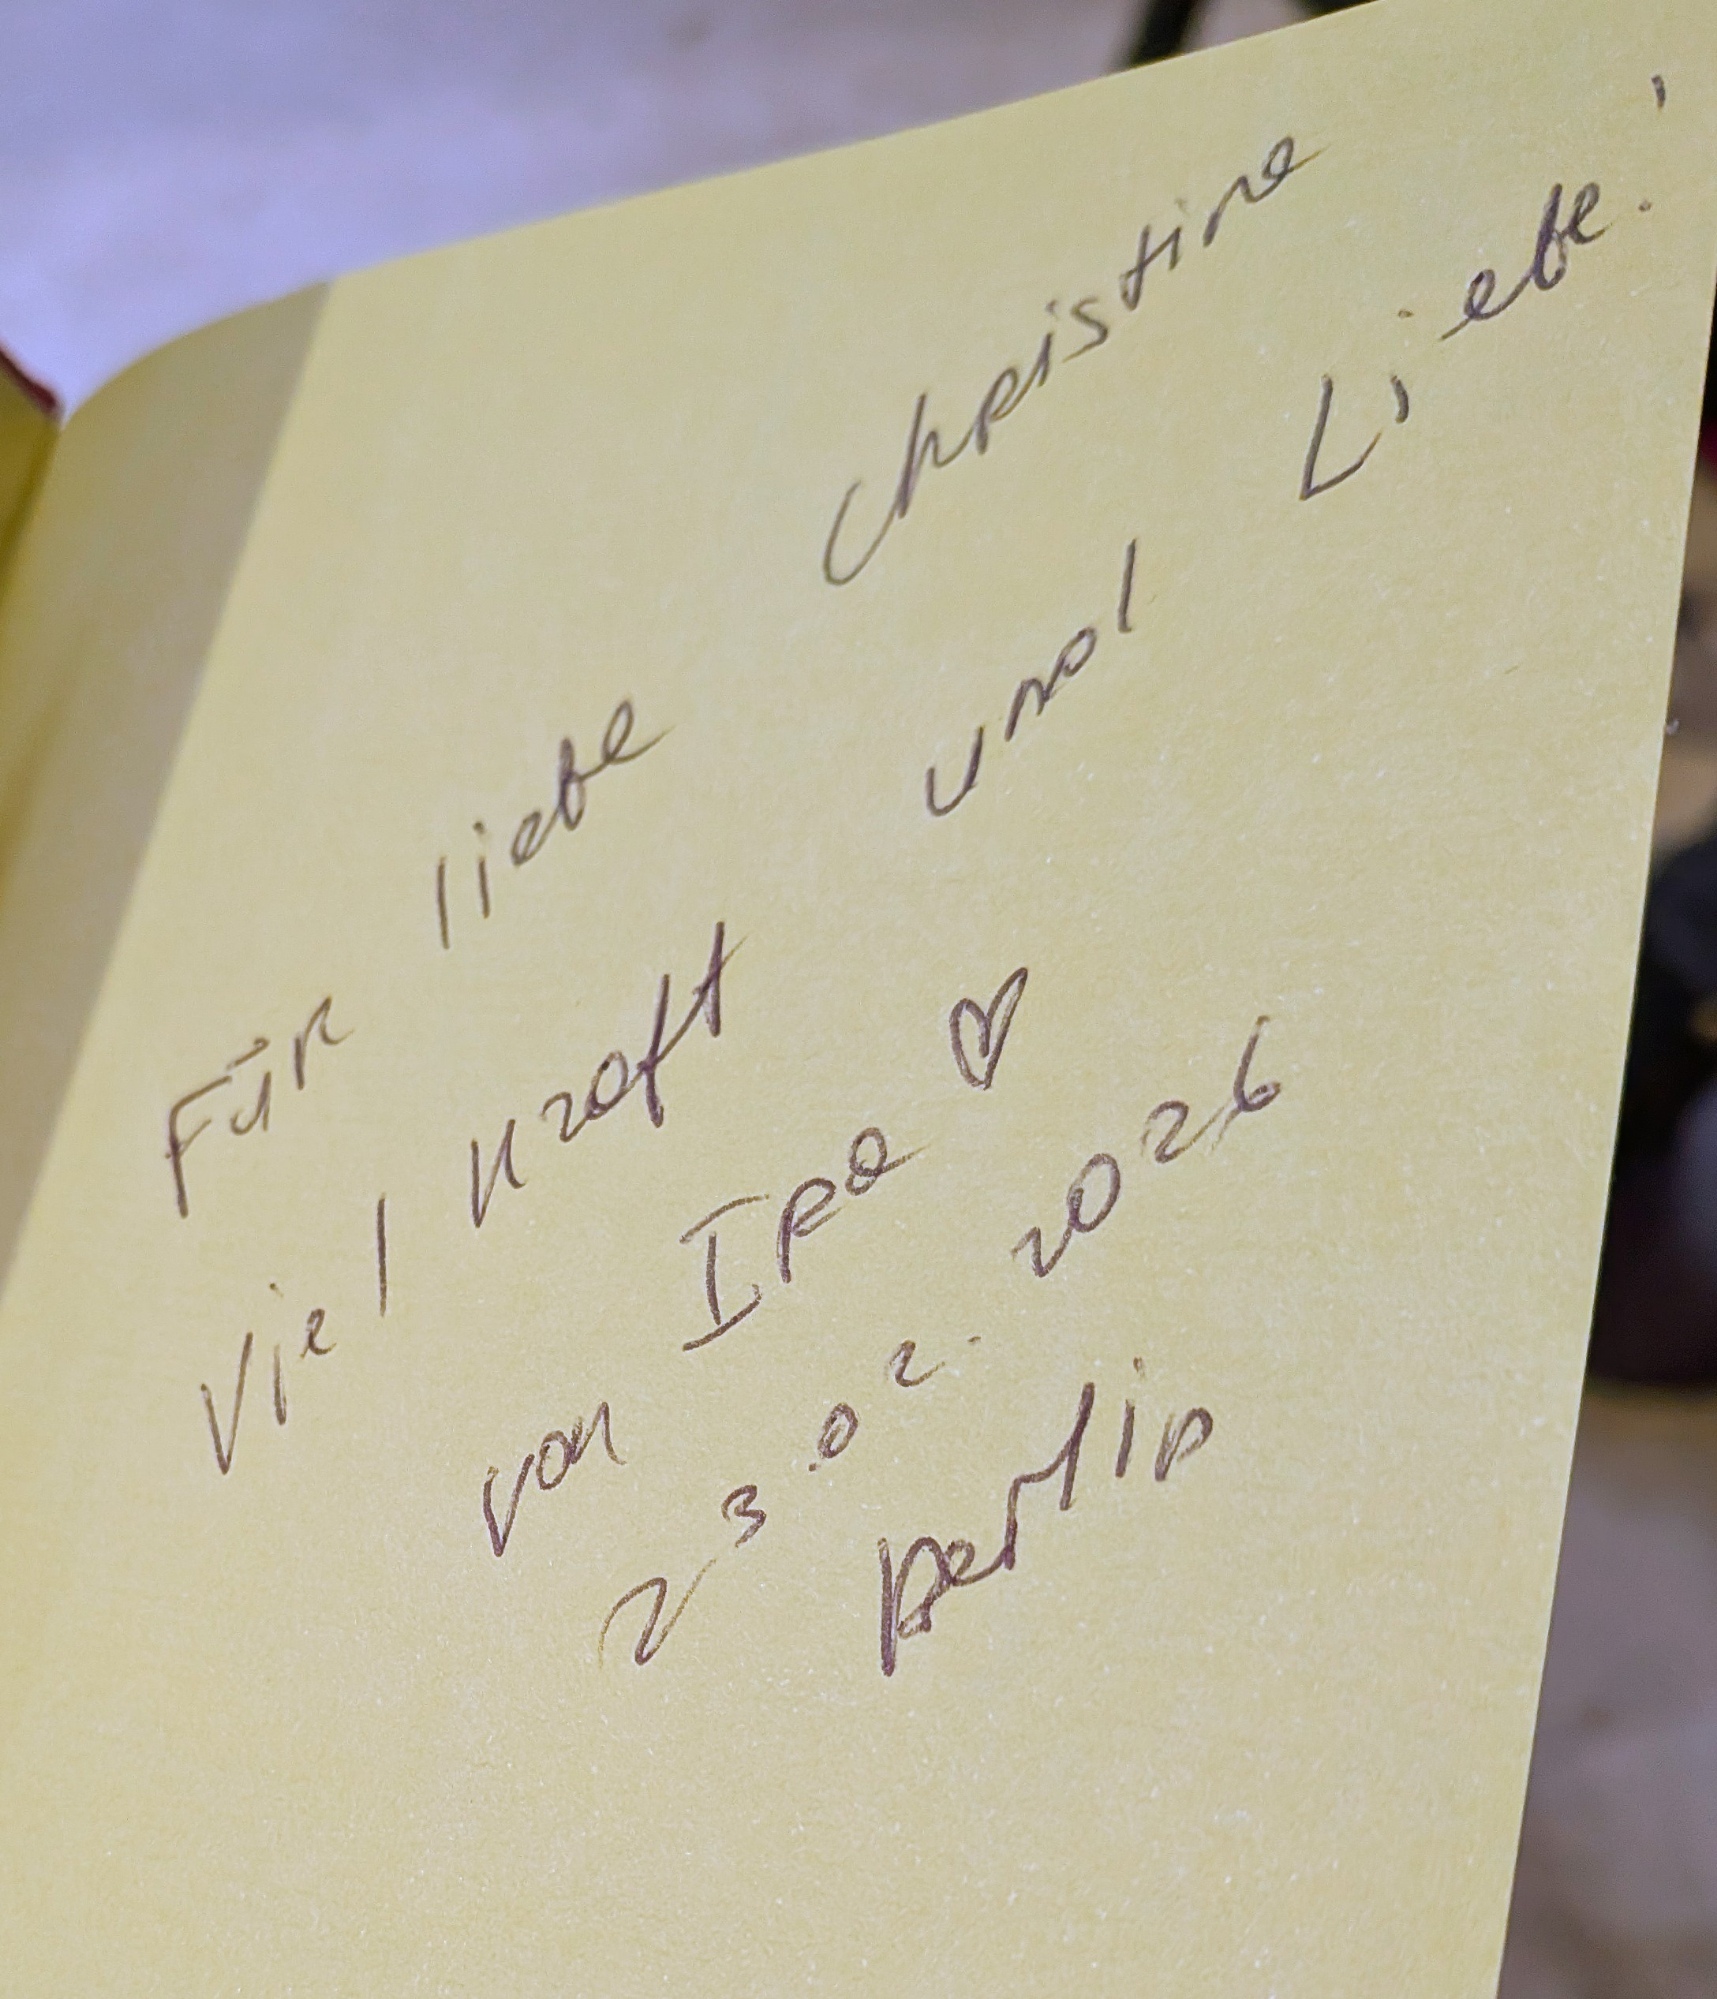 Für liebe Christine
Viel Kraft und Liebe!
von Ira ♡
23.02.2026
Berlin